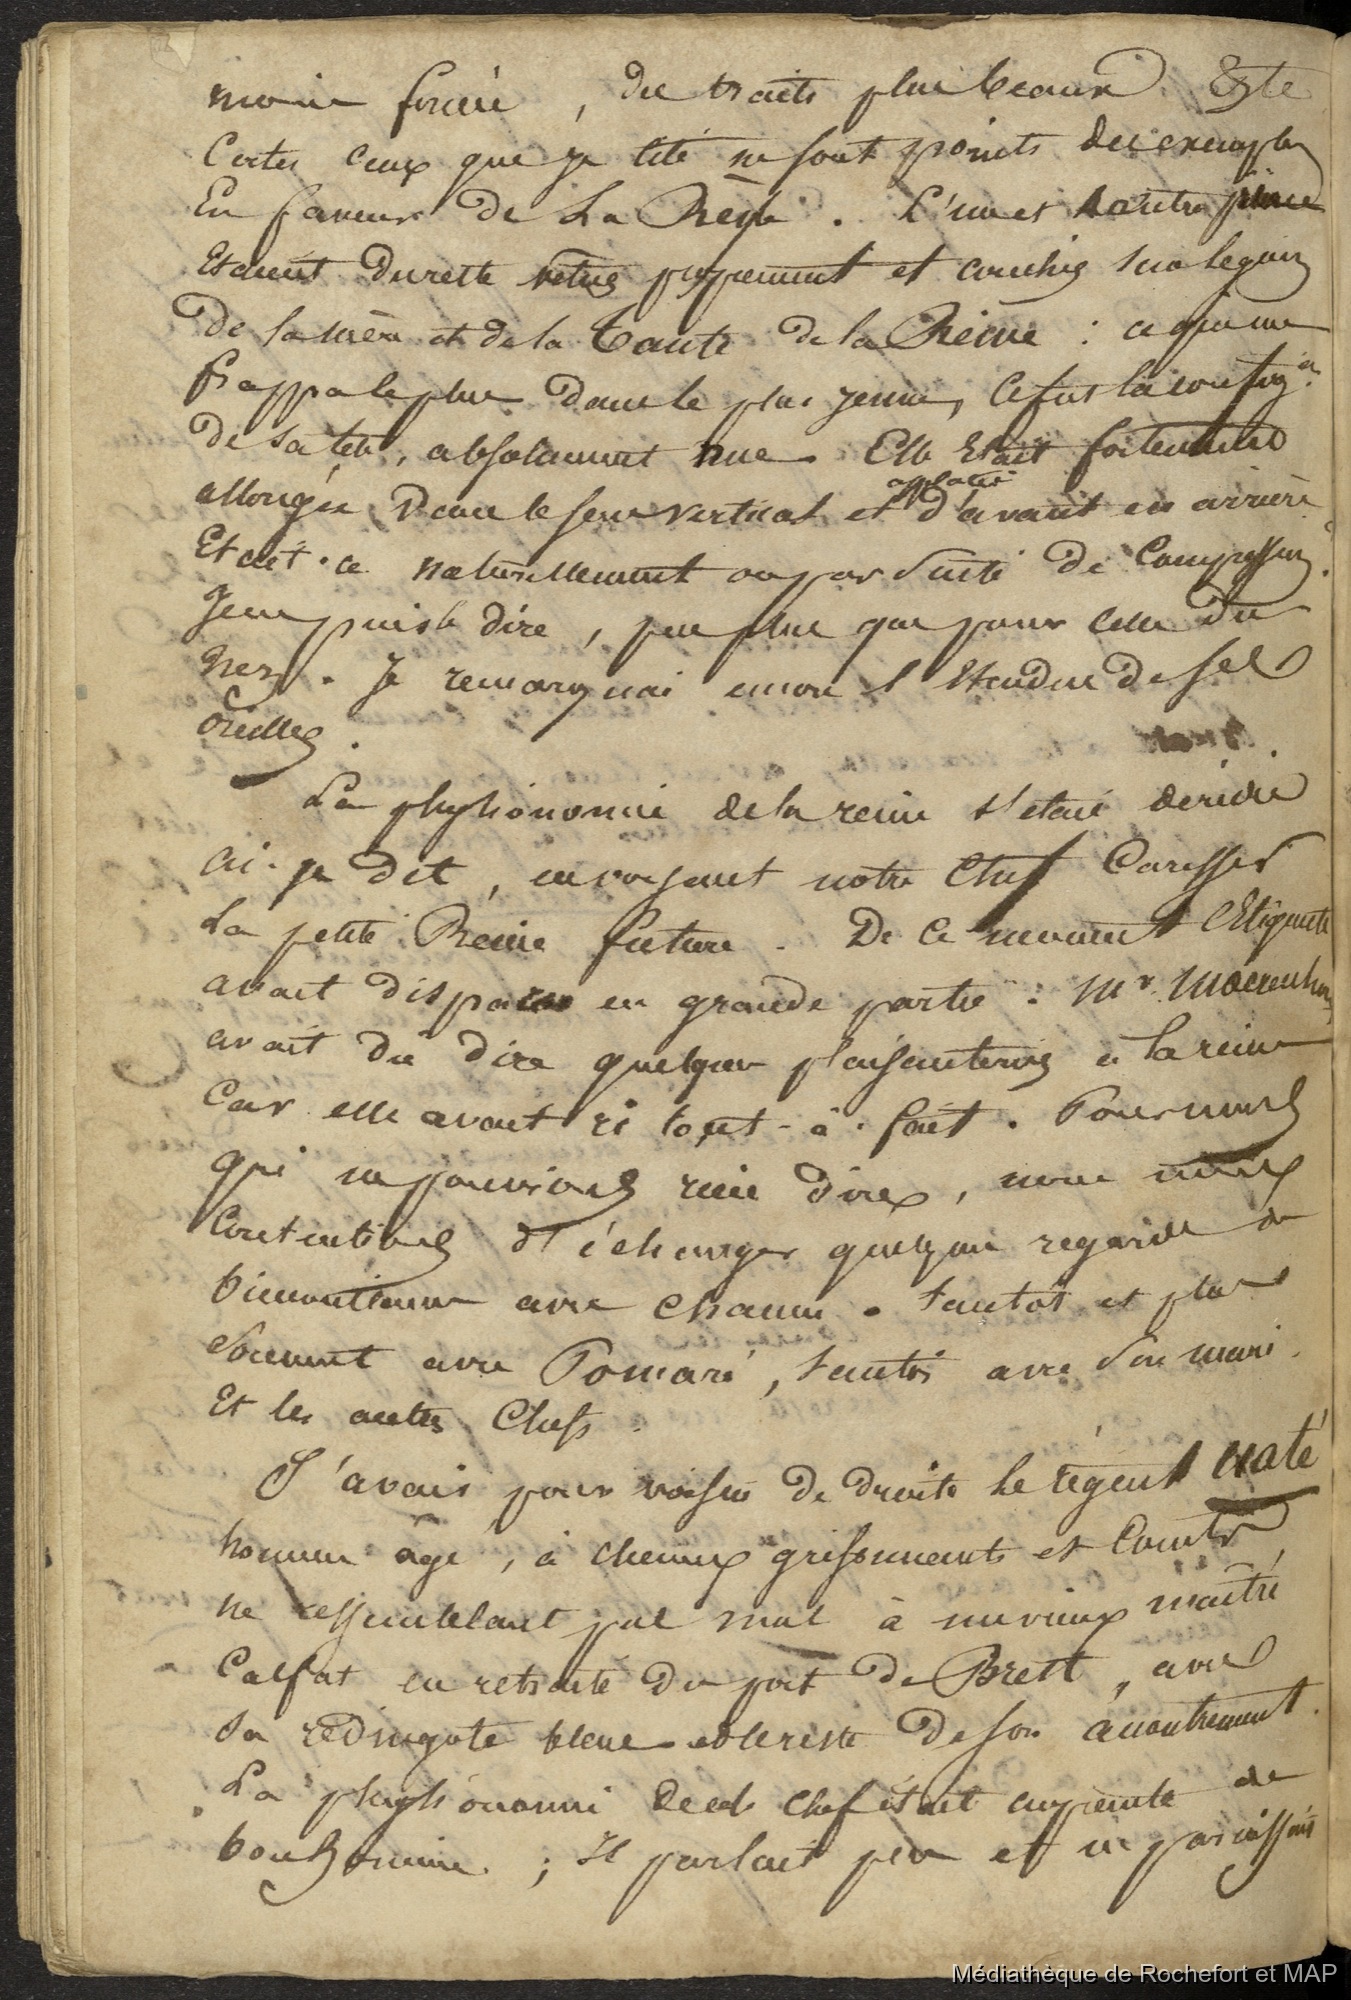 moins foncée, des traits plus beaux. Et
Certes ceux que je cite ne sont points des exemples
En faveur de La Règle. L'une et l'autre
Etaient du reste vetues proprement et couchées sur le giron
De la mère et de la Tante de la Reine : ce qui me
frappa le plus dans le plus jeune, ce fut la configon
De sa tête, absolument nue. Elle Etait fortement
allongée Dans le sens vertical et applatie d'avant en arrière
Etait-ce naturellement ou par Suite De Compression,
Je ne puis le dire, pas plus que pour celle Du
nez. Je remarquai encore l'Etendue De ses
Oreilles.
La physionomie de la reine s'etait deridée
ai-je Dit, en voyant notre Chef Caresser
La petite Reine future. De ce moment l'Etiquette
avait disparu en grande partie : Mr. Moerenhout
avait du dire quelques plaisanteries à la reine
Car elle avait ri tout-à-fait. Pour nous
qui ne pouvions rien dire, nous nous
Contentions d'échanger quelques regards de
bienveillance avec chacun. Tantot et plus
Souvent avec Pomaré, tantot avec Son mari
Et les autres Chefs.
J'avais pour voisin De droite le régent Uaté
homme âgé, à cheveux grisonnants et Courts
ne ressemblant pas mal à un vieux maître
Calfat en retraite Du port De Brest, avec
Sa redingote bleue et le reste De son accoutrement.
La physionomie de ce chef était empreinte de
bonhomie ; Il parlait peu et ne paraissait